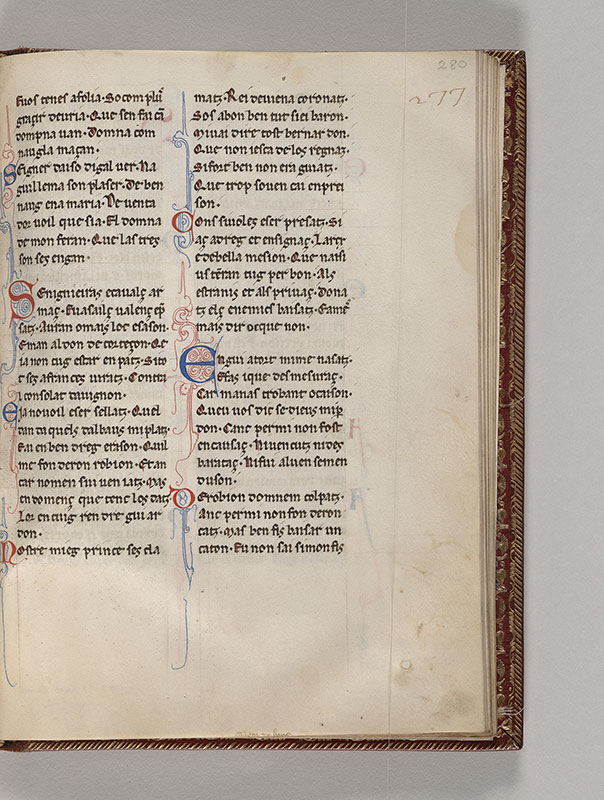 280
277
E uos tenes a folia. So com plū
graçir deuria. Que sen fai cū
dompna uan. Domna com
naugla maçan.
Seigner daiso digal uer. Na
guillema son plaser. De ben
naug ena maria. De uenta
dor uoil que sia. El domna
de mon feran. Que las tres
son ses engan.
Senignieiras e cauals ar
maç. E uasals ualenç ep
satz. Auran omais loc e sason.
E man al don de
ia non cug estar en patz. Si to
t ses afrances iuratz. Contra
l consolat dauignon.
Eia no uoil eser sellatz. Quel
tan ta quels talbaus mi platz.
Fai en ben dreg e rason. Quil
me fon deron robion. Etan
car nomen sui ueniatz. Mas
en domenç que tenc los datz.
Lor en cuig ren dre gui ar
don.
Nostre mieg prince ses cla
matz. Rei de uiena coronatz.
Sos abon ben tut siei baron.
Mi uai dire tost bernar don.
Que non iesca de los regnaz.
Si fort ben non era guiatz.
Que trop souen cai en prei
son.
Cons si uolez eser presatz. Si
aç adreg et ensignaç. Larçr
e de bella mesion. Que naisi
us teran tug per bon. Als
estranis et als priuaç. Dona
tz elç enemics baisatz.
mais dir oc que non.
Engui a tort mi me nasatz.
E fas i que des mesuraç.
Car manas trobant ocaison.
Queu uos dic se dieus mip
don. Canc per mi non fost
encausaç. Ni uencutz ni des
barataç. Ni fui al uen semen
duson.
De robion dom nem colpatz.
Anc per mi non fon deron
catz. Mas ben fis baisar un
caton. Eu non sai si mon fis